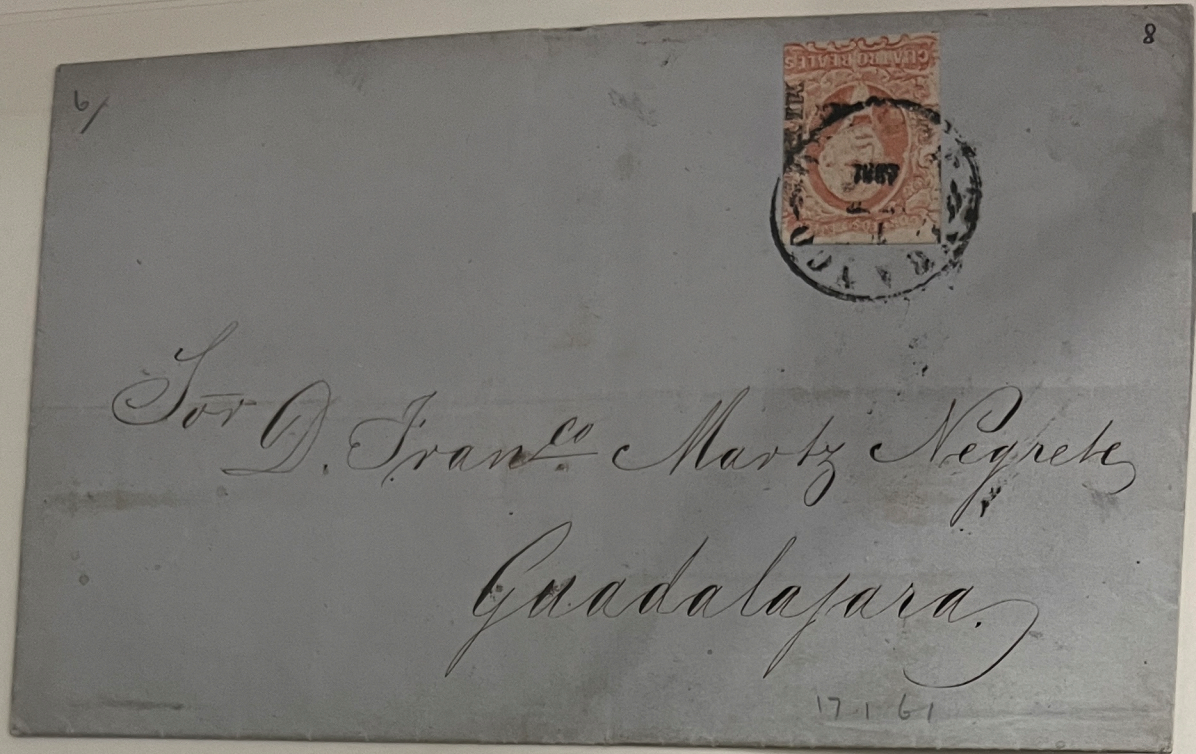 8
6/
CUATRO REALES
FRANCO
Sor D. Fran.co Martz Negrete
Guadalajara.
17 1 61